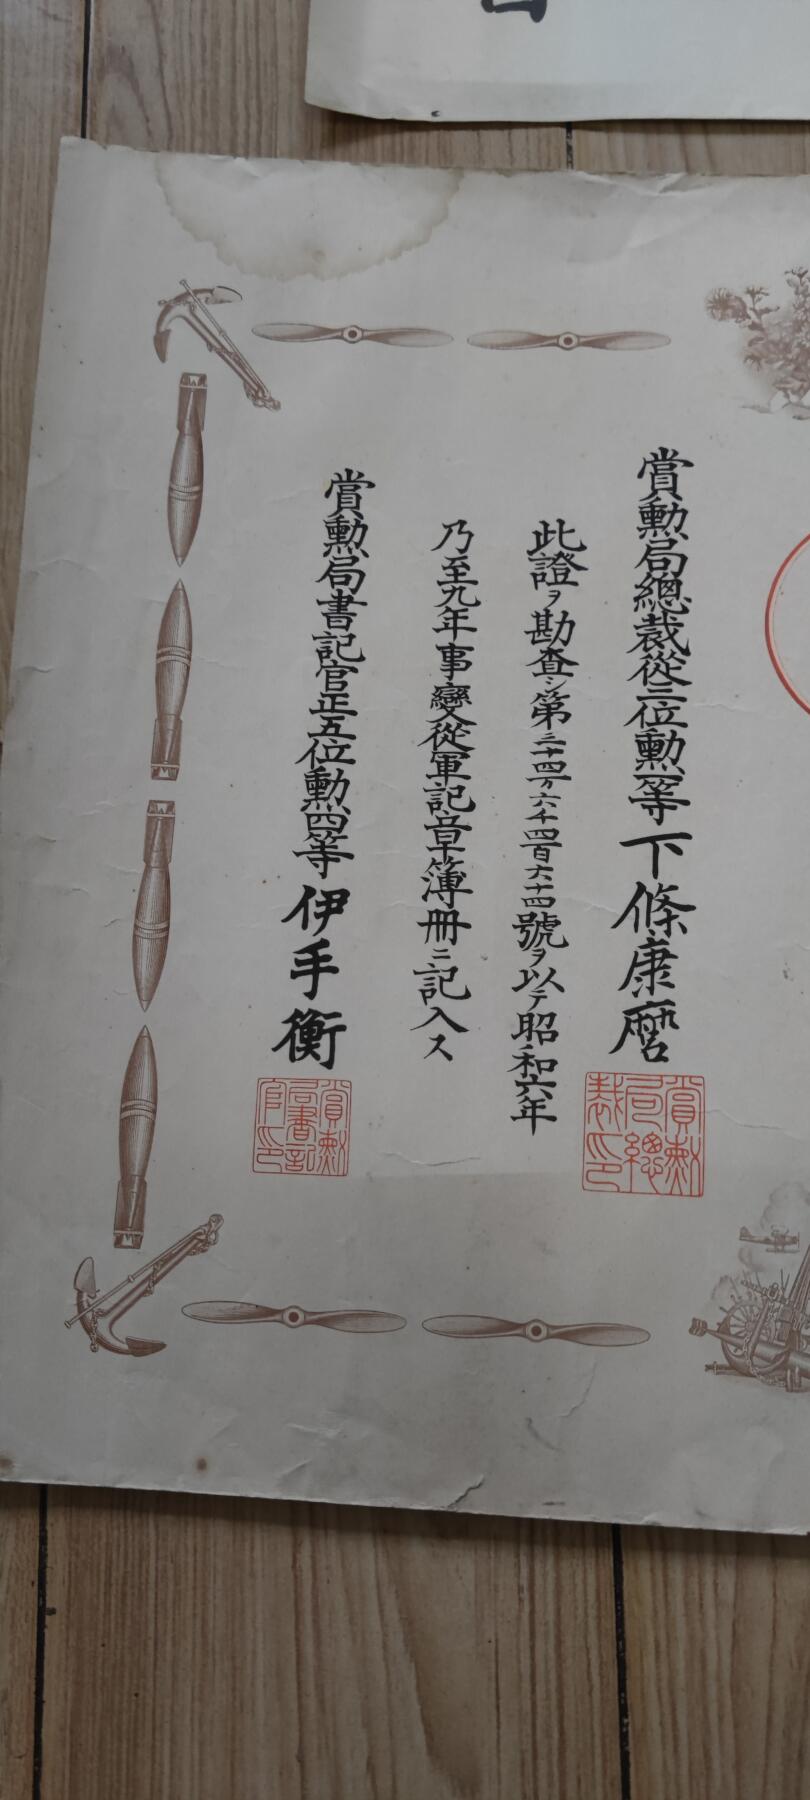 賞勲局總裁從三位勲一等下條康麿
賞勲局總裁印
此證ヲ勘査シ第二十四万六千四百六十四號ヲ以テ昭和六年
乃至九年事變從軍記章簿冊ニ記入ス
賞勲局書記官正五位勲四等伊手衡
賞勲局書記官印